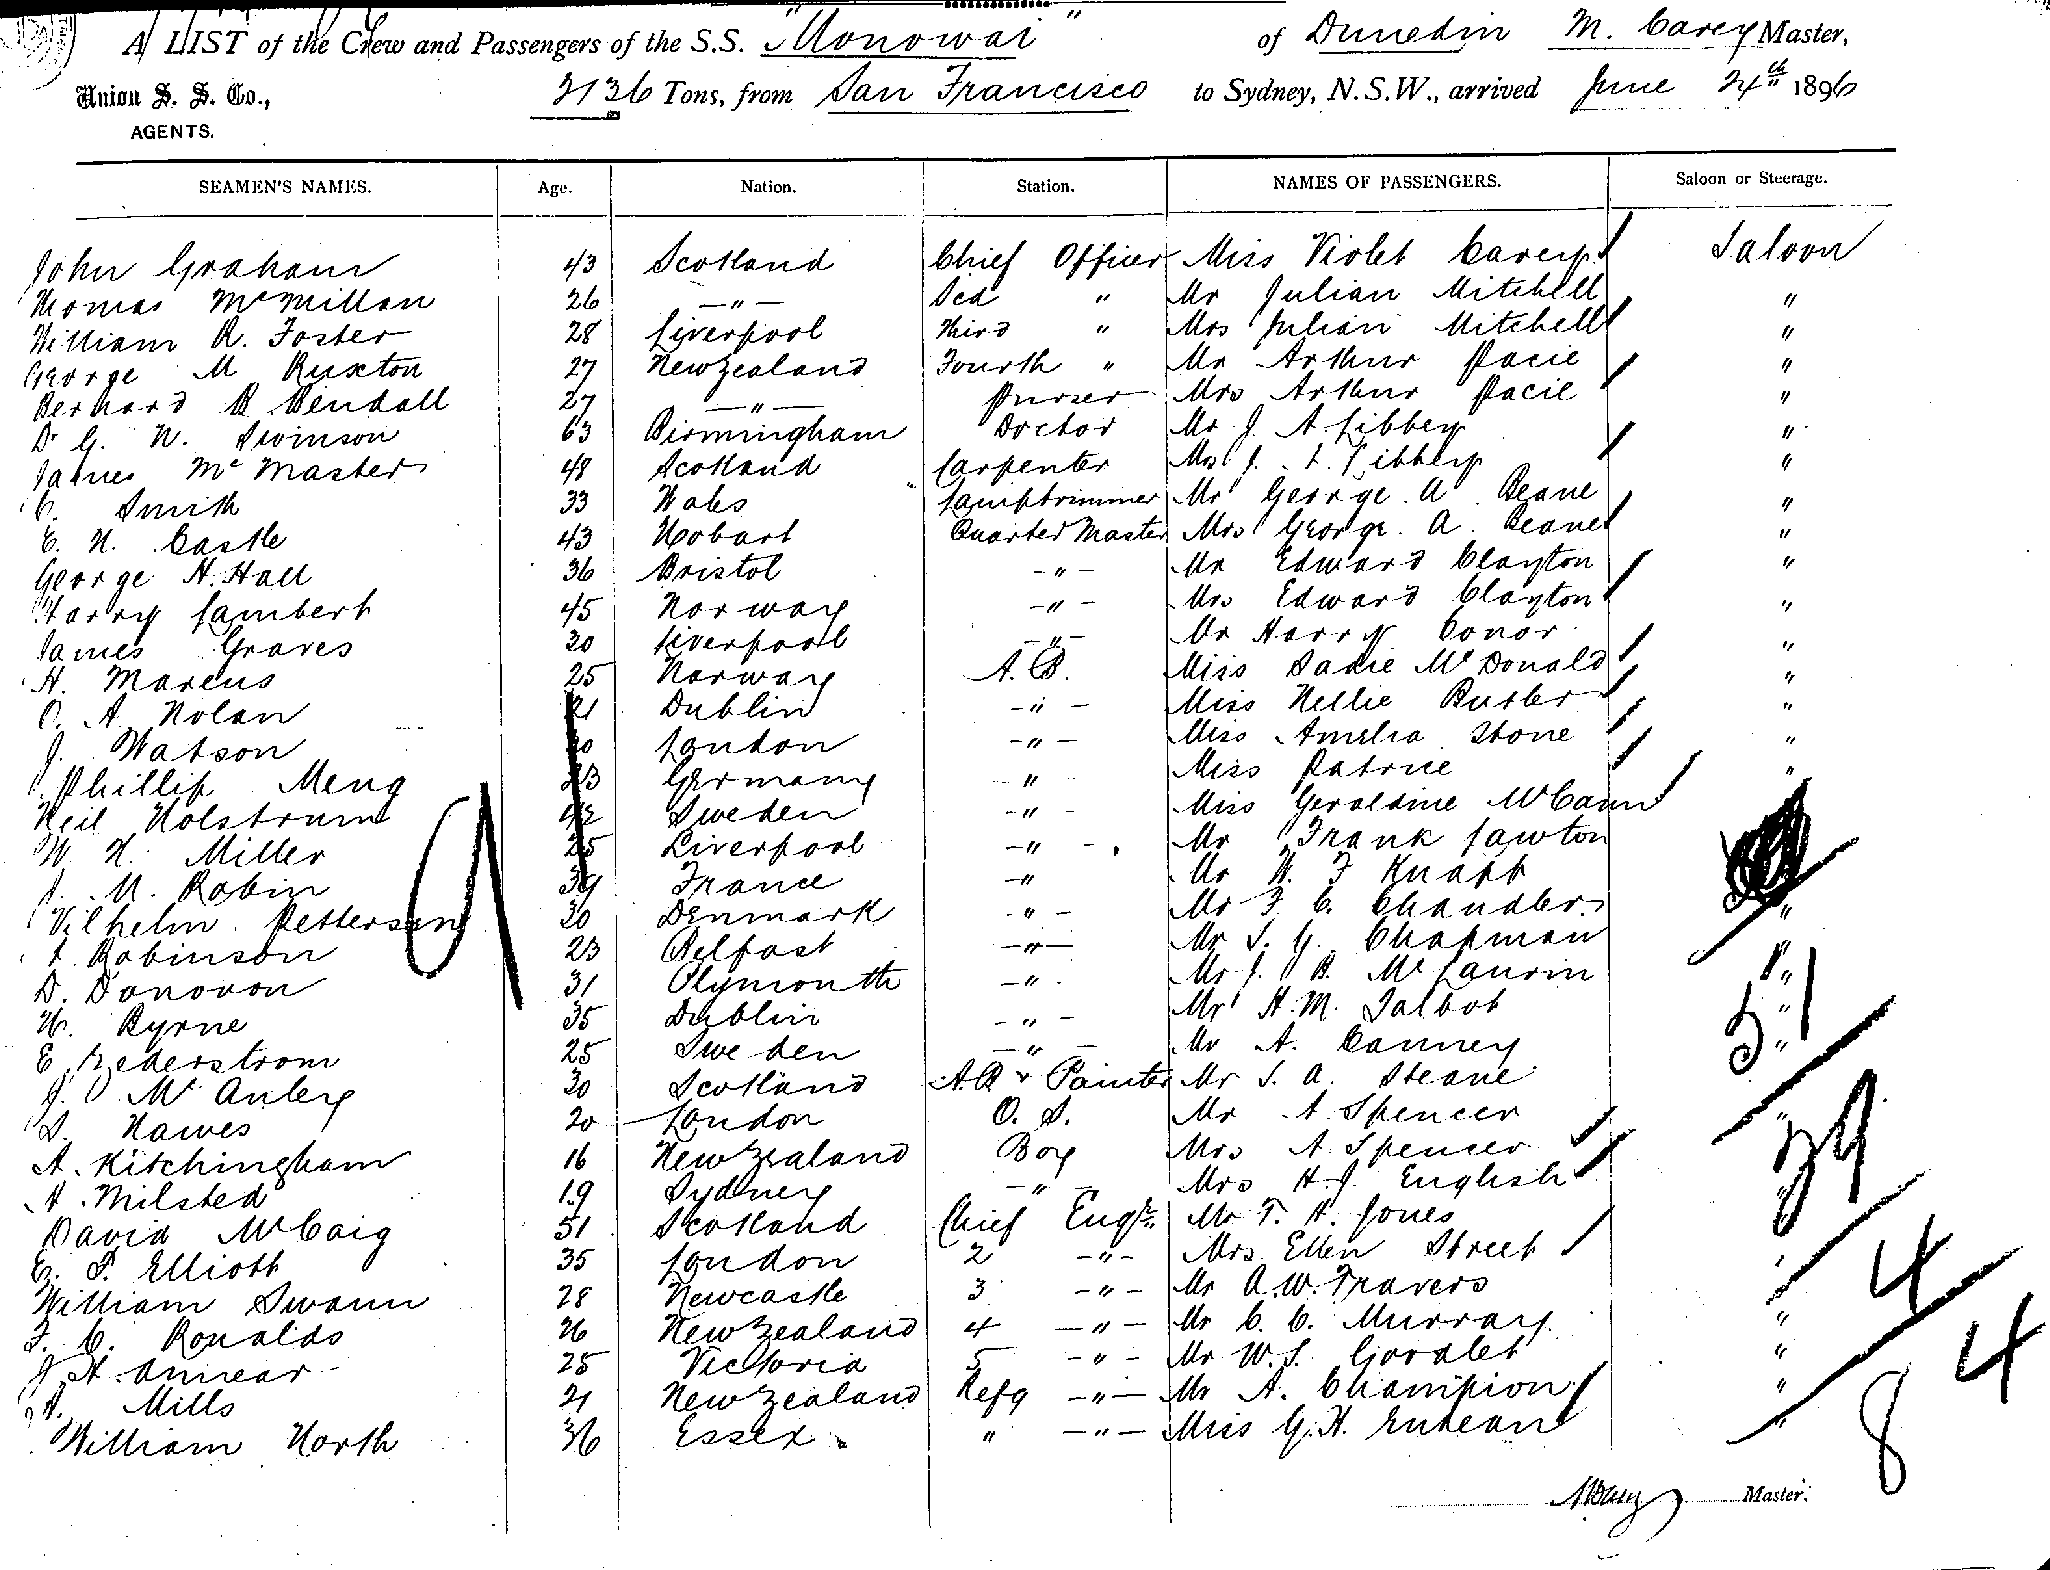 A LIST of the Crew and Passengers of the S.S. "Monowai" of Dunedin M. Carey Master,
Union S. S. Co., 3136 Tons, from San Francisco to Sydney, N.S.W., arrived June 24th 1896
AGENTS.
SEAMEN'S NAMES. Age. Nation. Station. NAMES OF PASSENGERS. Saloon or Steerage.
John Graham 43 Scotland Chief Officer Miss Violet Carey Saloon
Thomas McMillan 26 —"— Scd " Mr Julian Mitchell "
William R. Foster 28 Liverpool Third " Mrs Julian Mitchell "
George M Ruxton 27 New Zealand Fourth " Mr Arthur Pacie "
Bernard B Bendall 27 —"— Purser Mrs Arthur Pacie "
Dr G. N. Swinson 63 Birmingham Doctor Mr J. A Libbey "
James McMaster 48 Scotland Carpenter Mrs J. A. Libbey "
C. Smith 33 Wales Lamptrimmer Mr George. A Beane "
E. N. Castle 43 Hobart Quarter Master Mrs George. A. Beane "
George H. Hall 36 Bristol -"- Mr Edward Clayton "
Harry Lambert 45 Norway -"- Mrs Edward Clayton "
James Graves 30 Liverpool -"- Mr Harry Conor "
H. Marcus 25 Norway A. B. Miss Sadie McDonald "
O. A. Nolan 21 Dublin -"- Miss Nellie Butler "
J. Watson 30 London -"- Miss Amelia Stone "
Phillip Meng 23 Germany -" Miss Patrice "
Neil Holstrum 42 Sweden -"- Miss Geraldine McCann
W. H. Miller 25 Liverpool -"- Mr Frank Lawton
J. M. Robin 39 France -" Mr W. F Knapp
Vilhelm Pettersen 30 Denmark -"- Mr F. C. Chandler "
Robinson 23 Belfast -"- Mr S. G. Chapman "
D. Donovon 31 Plymouth -" Mr J. B. McLaurin "
W. Byrne 35 Dublin -"- Mr H. M. Talbot "
E. Zederstrom 25 Sweden -"- Mr A. Canney "
J. McAuley 30 Scotland A.B & Painter Mr S. A. Steane
S. Hawes 20 London O. S. Mr A Spencer "
A. Kitchingham 16 New Zealand Boy Mrs A Spencer
A. Milsted 19 Sydney -"- Mrs H. J. English "
David McCaig 51 Scotland Chief Engr Mr T. H. Jones "
E. S. Elliott 35 London 2 -"- Mrs Ellen Street "
William Swann 28 Newcastle 3 -"- Mr A. W. Travers "
F. C. Ronalds 26 New Zealand 4 -"- Mr C. C. Murray "
J. H. Annear 25 Victoria 5 -"- Mr W. S. "
A. Mills 21 New Zealand Refg -"- Mr A. Champion "
William North 36 Essex " -"- Miss G. H. Endean "
9
51
29
4
4
8
MCarey Master.